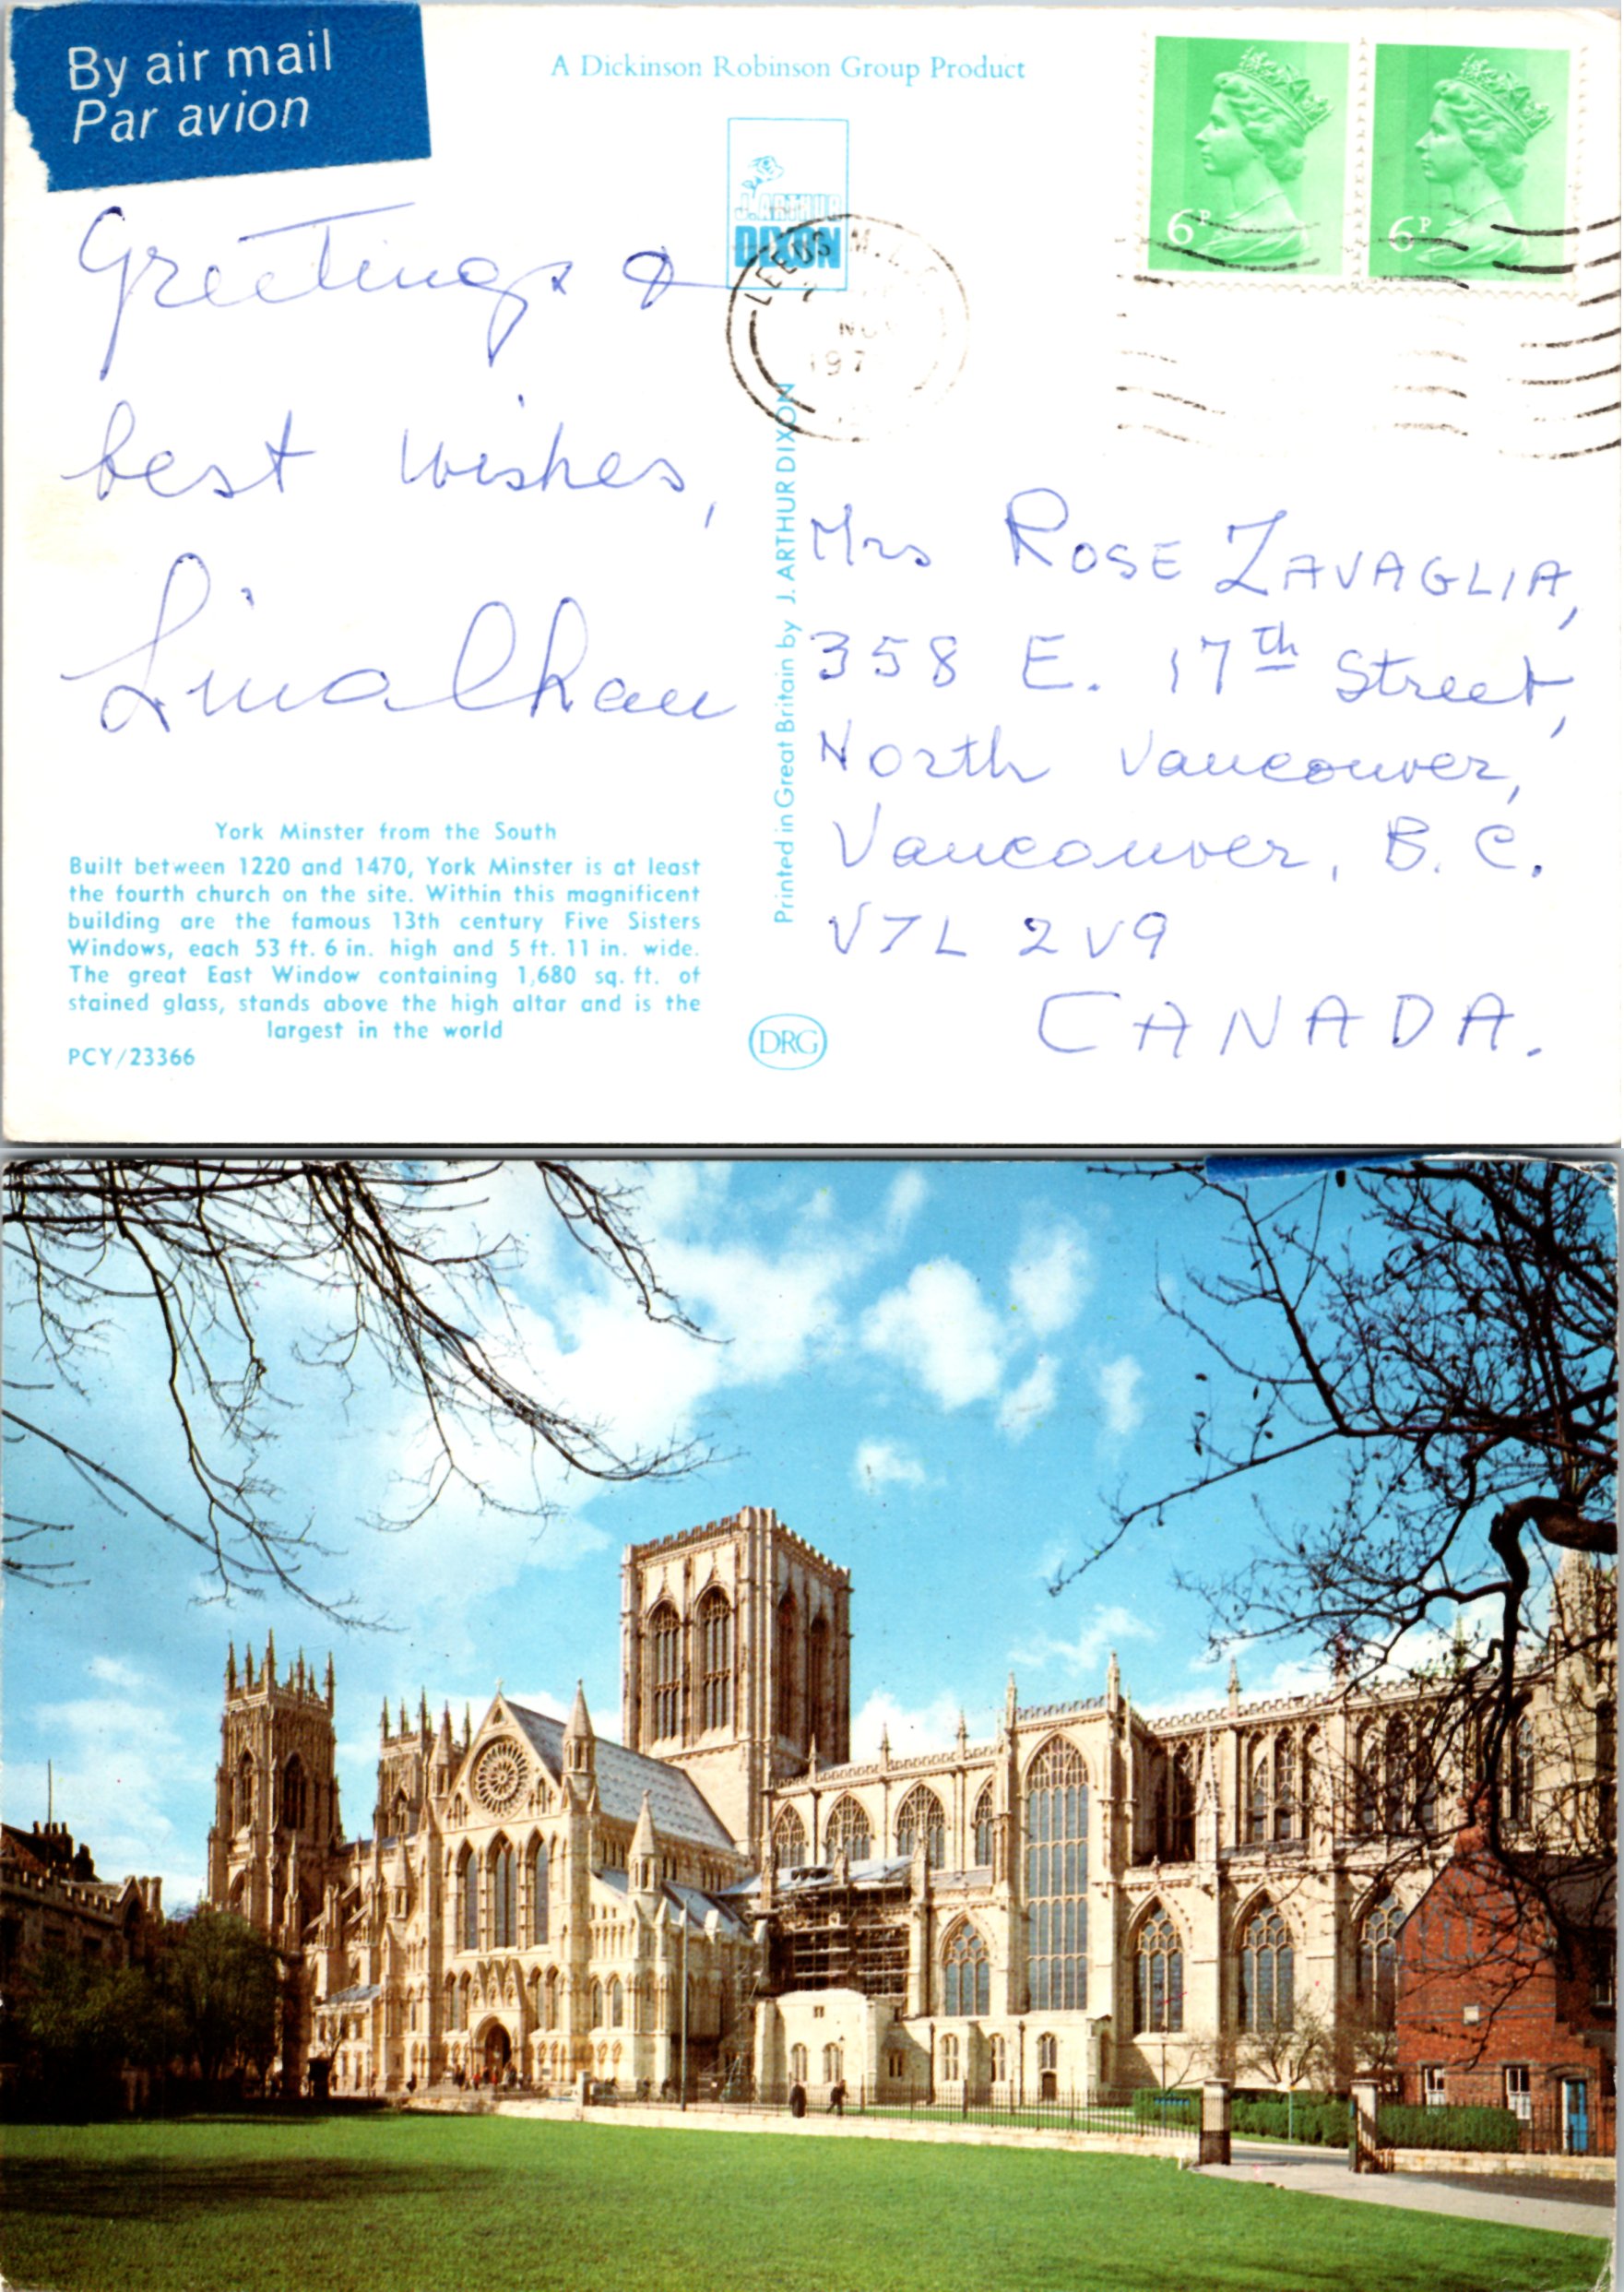 By air mail
Par avion
A Dickinson Robinson Group Product
J. ARTHUR
DIXON
6P
6P
LEEDS
NOV
197
Greetings &
best wishes,
Printed in Great Britain by J. ARTHUR DIXON
Mrs ROSE ZAVAGLIA,
358 E. 17th Street,
North Vancouver,
Vancouver, B.C.
V7L 2V9
CANADA.
York Minster from the South
Built between 1220 and 1470, York Minster is at least
the fourth church on the site. Within this magnificent
building are the famous 13th century Five Sisters
Windows, each 53 ft. 6 in. high and 5 ft. 11 in. wide.
The great East Window containing 1,680 sq. ft. of
stained glass, stands above the high altar and is the
largest in the world
PCY/23366
DRG